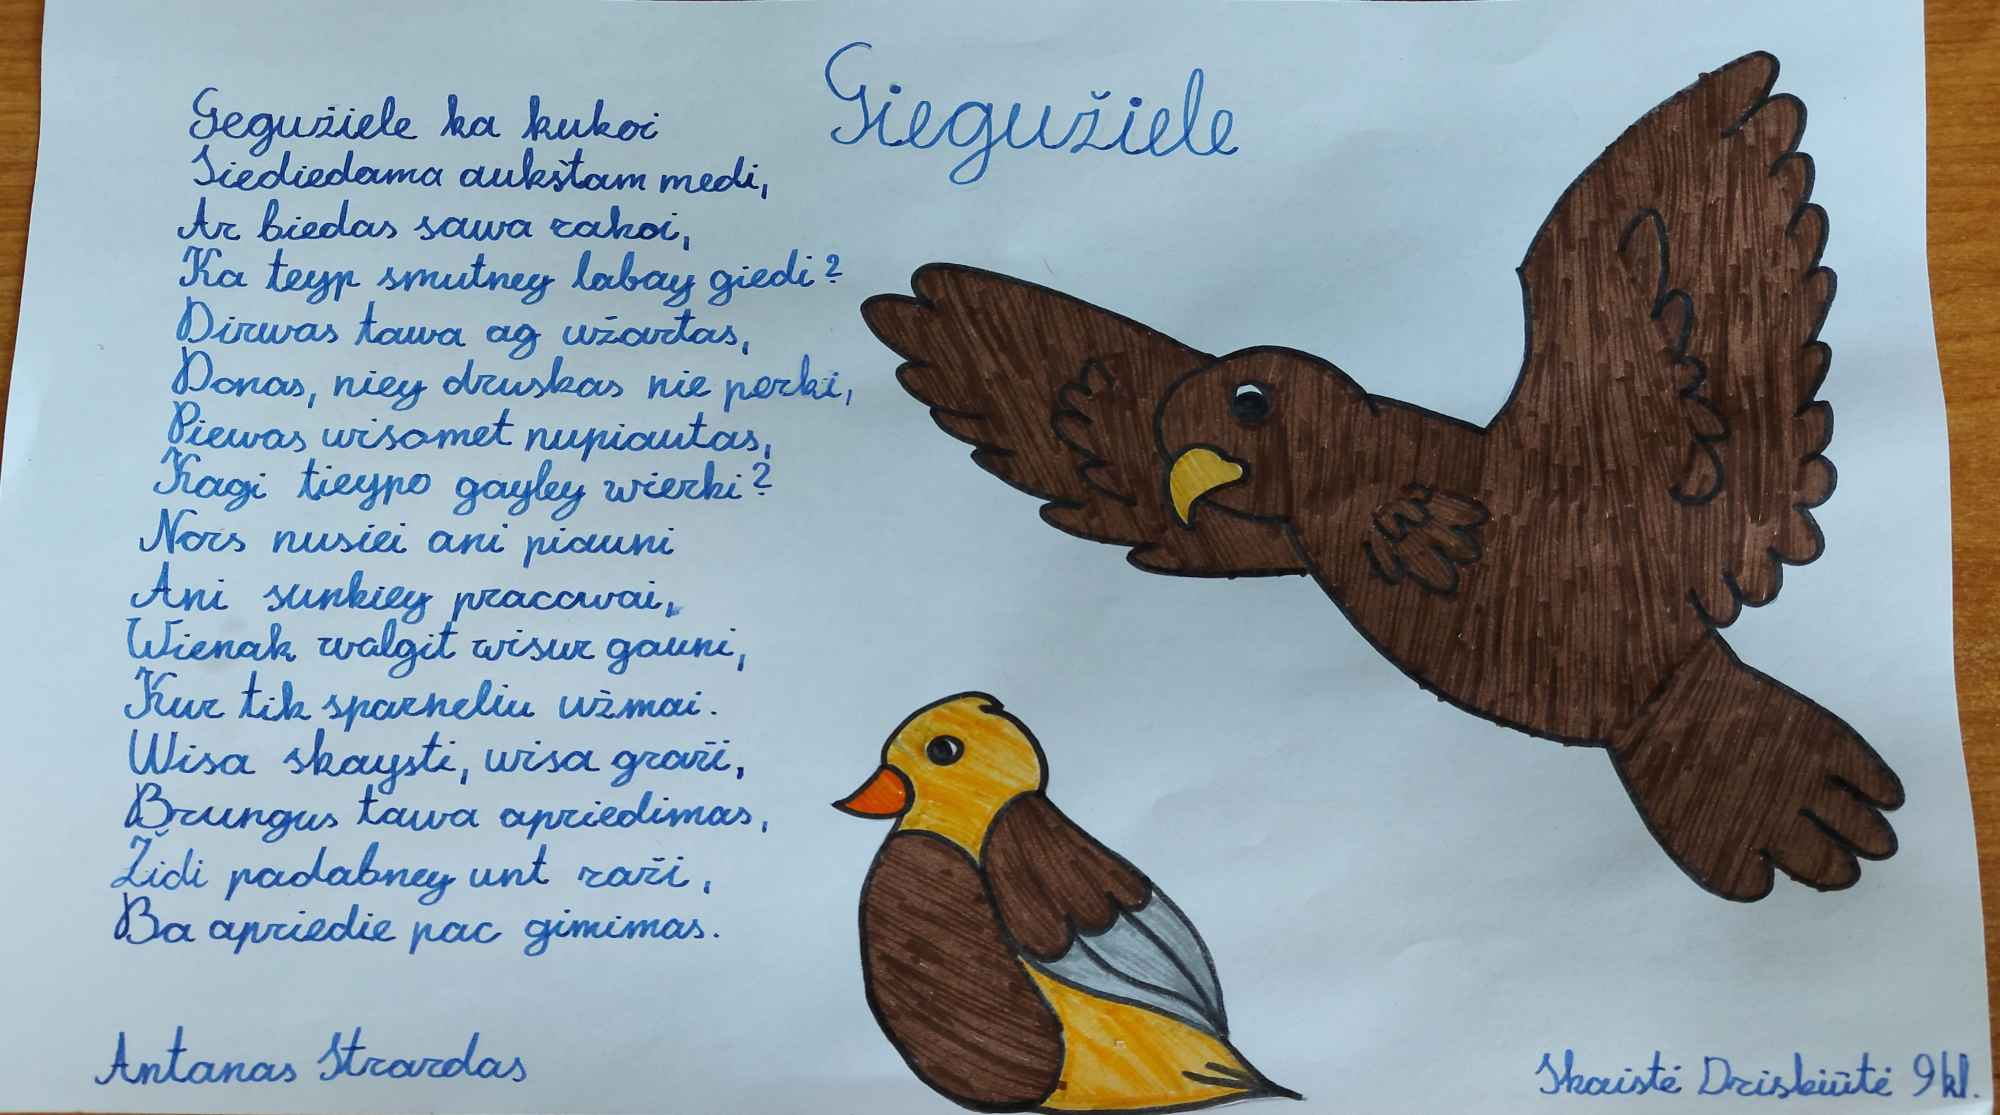 Giegužiele
Gegužiele ka kukoi
Siediedama aukštam medi,
Ar biedas sawa rakoi,
Ka teyp smutney labay giedi?
Dirwas tawa ag użartas,
Donas, niey druskas nie perki,
Piewas wisamet nupiautas,
Kagi tieypo gayley wierki?
Nors nusiei ani piauni
Ani sunkiey pracawai,
Wienak walgit wisur gauni,
Kur tik sparneliu użmai.
Wisa skaysti, wisa graži,
Brungus tawa apriedimas,
Židi padabney unt raži,
Ba apriedie pac gimimas.
Antanas Strardas
Skaistė Driskiūtė 9kl.